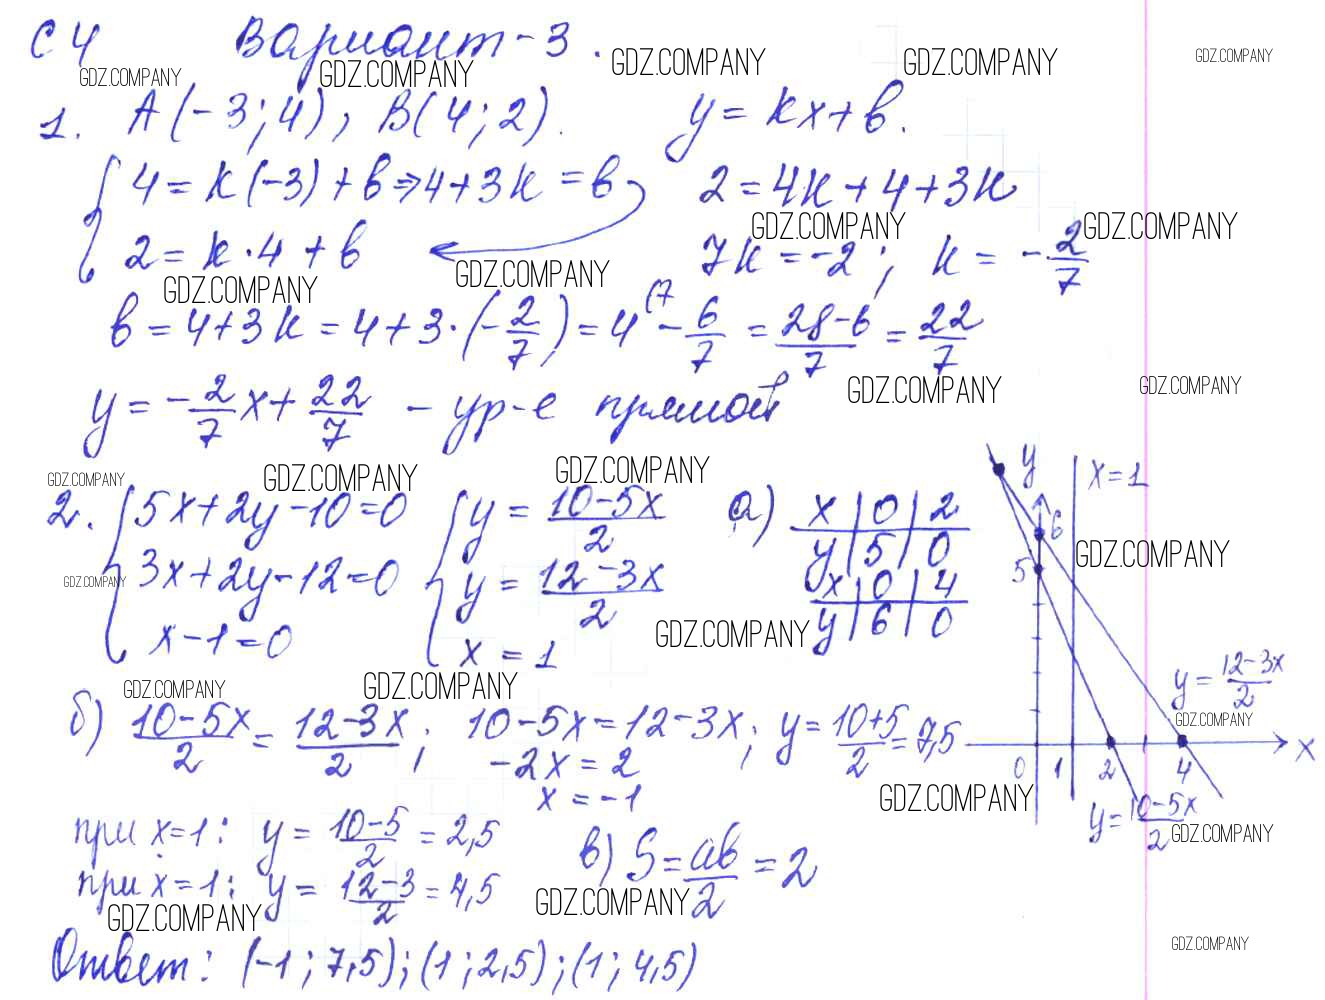 С 4 Вариант-3.
1. A(-3; 4), B(4; 2). y = kx + b.
{ 4 = k(-3) + b ⇒ 4 + 3k = b 2 = 4k + 4 + 3k
2 = k · 4 + b 7k = -2; k = -2/7
b = 4 + 3k = 4 + 3 · (-2/7) = 4 (7 - 6/7 = (28-6)/7 = 22/7
y = -2/7 x + 22/7 - ур-е прямой
2. { 5x + 2y - 10 = 0 { y = (10-5x)/2 а) x | 0 | 2
y | 5 | 0
3x + 2y - 12 = 0 y = (12-3x)/2 x | 0 | 4
y | 6 | 0
x - 1 = 0 x = 1
y x = 1
6
5
y = (12-3x)/2
0 1 2 4 x
y = (10-5x)/2
б) (10-5x)/2 = (12-3x)/2; 10-5x = 12-3x; y = (10+5)/2 = 7,5
-2x = 2
x = -1
при x=1: y = (10-5)/2 = 2,5 в) S = ab/2 = 2
при x=1: y = (12-3)/2 = 4,5
Ответ: (-1; 7,5); (1; 2,5); (1; 4,5)
GDZ.COMPANY GDZ.COMPANY GDZ.COMPANY GDZ.COMPANY GDZ.COMPANY
GDZ.COMPANY GDZ.COMPANY
GDZ.COMPANY GDZ.COMPANY
GDZ.COMPANY GDZ.COMPANY
GDZ.COMPANY GDZ.COMPANY GDZ.COMPANY
GDZ.COMPANY GDZ.COMPANY
GDZ.COMPANY
GDZ.COMPANY GDZ.COMPANY GDZ.COMPANY
GDZ.COMPANY GDZ.COMPANY
GDZ.COMPANY GDZ.COMPANY GDZ.COMPANY